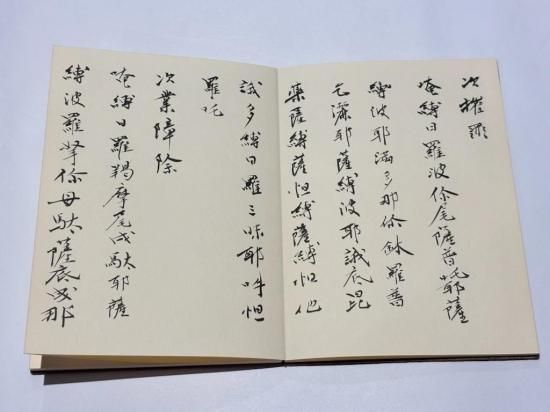 次摧罪
唵縛日羅波你尾薩普吒耶薩
縛波耶滿多那你鉢羅普
乞灑耶薩縛波耶誐底毘
藥薩縛薩怛縛薩縛怛他
誐多縛日羅三昧耶吽怛
羅吒
次業障除
唵縛日羅羯摩尾戍馱耶薩
縛波羅拏你母馱薩底戍那